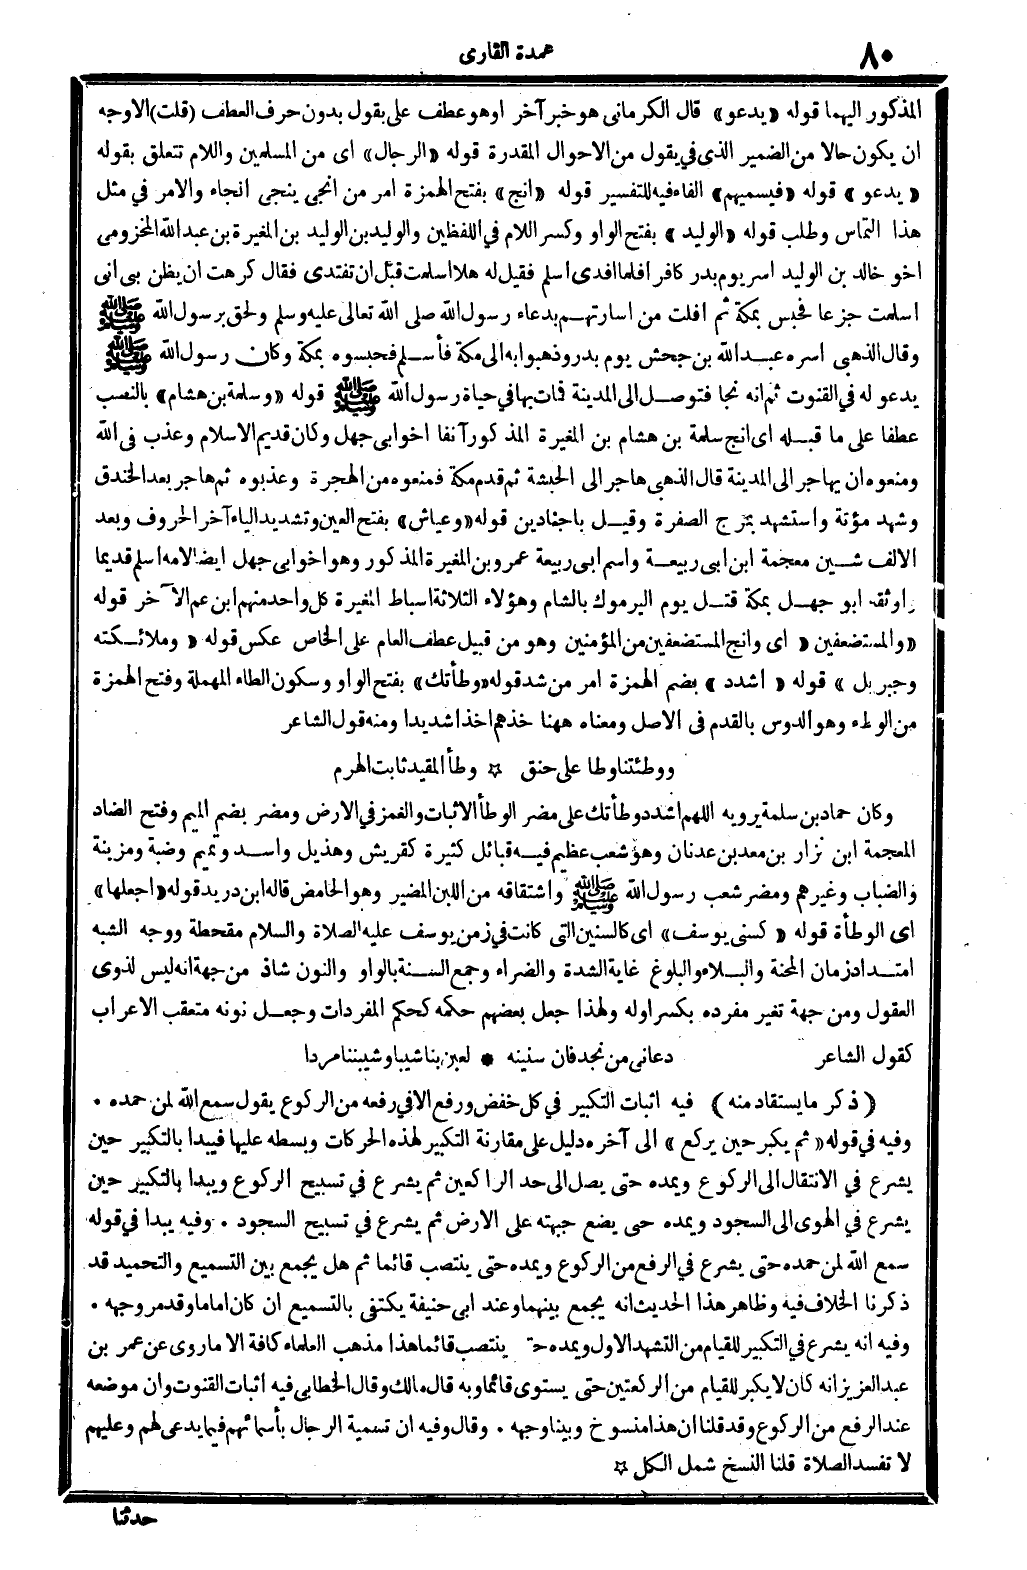 ٨٠
عمدة القارى
المذكور اليهما قوله «يدعو» قال الكرمانى هو خبر آخر او هو عطف على بقول بدون حرف العطف (قلت) الاوجه
ان يكون حالا من الضمير الذى فى يقول من الاحوال المقدرة قوله «الرجال» اى من المسلمين واللام تتعلق بقوله
«يدعو» قوله «فيسميهم» الفاء فيه للتفسير قوله «انج» بفتح الهمزة امر من انجى ينجى انجاء والامر فى مثل
هذا التماس وطلب قوله «الوليد» بفتح الواو وكسر اللام فى اللفظين والوليد بن الوليد بن المغيرة بن عبد الله المخزومى
اخو خالد بن الوليد اسر يوم بدر كافرا فلما افدى اسلم فقيل له هلا اسلمت قبل ان تفتدى فقال كرهت ان يظن بى انى
اسلمت جزعا فحبس بمكة ثم افلت من اسارتهم بدعاء رسول الله صلى الله تعالى عليه وسلم ولحق برسول الله ﷺ
وقال الذهبى اسره عبد الله بن جحش يوم بدر وذهبوا به الى مكة فأسلم فحبسوه بمكة وكان رسول الله ﷺ
يدعو له فى القنوت ثم انه نجا فتوصل الى المدينة فمات بها فى حياة رسول الله ﷺ قوله «وسلمة بن هشام» بالنصب
عطفا على ما قبله اى انج سلمة بن هشام بن المغيرة المذكور آنفا اخو ابى جهل وكان قديم الاسلام وعذب فى الله
ومنعوه ان يهاجر الى المدينة قال الذهبى هاجر الى الحبشة ثم قدم مكة فمنعوه من الهجرة وعذبوه ثم هاجر بعد الخندق
وشهد مؤتة واستشهد بمرج الصفرة وقيل باجنادين قوله «وعياش» بفتح العين وتشديد الياء آخر الحروف وبعد
الالف شين معجمة ابن ابى ربيعة واسم ابى ربيعة عمرو بن المغيرة المذكور وهو اخو ابى جهل ايضا لامه اسلم قديما
واوثقه ابو جهل بمكة قتل يوم اليرموك بالشام وهؤلاء الثلاثة اسباط المغيرة كل واحد منهم ابن عم الآخر قوله
«والمستضعفين» اى وانج المستضعفين من المؤمنين وهو من قبيل عطف العام على الخاص عكس قوله «وملائكته
وجبريل» قوله «اشدد» بضم الهمزة امر من شد قوله «وطأتك» بفتح الواو وسكون الطاء المهملة وفتح الهمزة
من الوطء وهو الدوس بالقدم فى الاصل ومعناه ههنا خذهم اخذا شديدا ومنه قول الشاعر
ووطئتنا وطا على حنق ☆ وطأ المقيد ثابت الهرم
وكان حماد بن سلمة يرويه اللهم اشدد وطأتك على مضر الوطأ الاثبات والغمز فى الارض ومضر بضم الميم وفتح الضاد
المعجمة ابن نزار بن معد بن عدنان وهو شعب عظيم فيه قبائل كثيرة كقريش وهذيل واسد وتميم وضبة ومزينة
والضباب وغيرهم ومضر شعب رسول الله ﷺ واشتقاقه من اللبن المضير وهو الحامض قاله ابن دريد قوله «اجعلها»
اى الوطأة قوله «كسنى يوسف» اى كالسنين التى كانت فى زمن يوسف عليه الصلاة والسلام مقحطة ووجه الشبه
امتداد زمان المحنة والبلاء والبلوغ غاية الشدة والضراء وجمع السنة بالواو والنون شاذ من جهة انه ليس لذوى
العقول ومن جهة تغير مفرده بكسر اوله ولهذا جعل بعضهم حكمه كحكم المفردات وجعل نونه متعقب الاعراب
كقول الشاعر دعانى من نجد فان سنينه * لعبن بنا شيبا وشيبننا مردا
(ذكر ما يستفاد منه) فيه اثبات التكبير فى كل خفض ورفع الا فى رفعه من الركوع يقول سمع الله لمن حمده .
وفيه فى قوله «ثم يكبر حين يركع» الى آخره دليل على مقارنة التكبير لهذه الحركات وبسطه عليها فيبدا بالتكبير حين
يشرع فى الانتقال الى الركوع ويمده حتى يصل الى حد الراكعين ثم يشرع فى تسبيح الركوع ويبدا بالتكبير حين
يشرع فى الهوى الى السجود ويمده حتى يضع جبهته على الارض ثم يشرع فى تسبيح السجود . وفيه يبدا فى قوله
سمع الله لمن حمده حتى يشرع فى الرفع من الركوع ويمده حتى ينتصب قائما ثم هل يجمع بين التسميع والتحميد قد
ذكرنا الخلاف فيه وظاهر هذا الحديث انه يجمع بينهما وعند ابى حنيفة يكتفى بالتسميع ان كان اماما وقد مر وجهه .
وفيه انه يشرع فى التكبير للقيام من التشهد الاول ويمده حتى ينتصب قائما هذا مذهب العلماء كافة الا ما روى عن عمر بن
عبد العزيز انه كان لا يكبر للقيام من الركعتين حتى يستوى قائما وبه قال مالك وقال الخطابى فيه اثبات القنوت وان موضعه
عند الرفع من الركوع وقد قلنا ان هذا منسوخ وبينا وجهه . وقال وفيه ان تسمية الرجال بأسمائهم فيما يدعى لهم وعليهم
لا تفسد الصلاة قلنا النسخ شمل الكل ☆
حدثنا